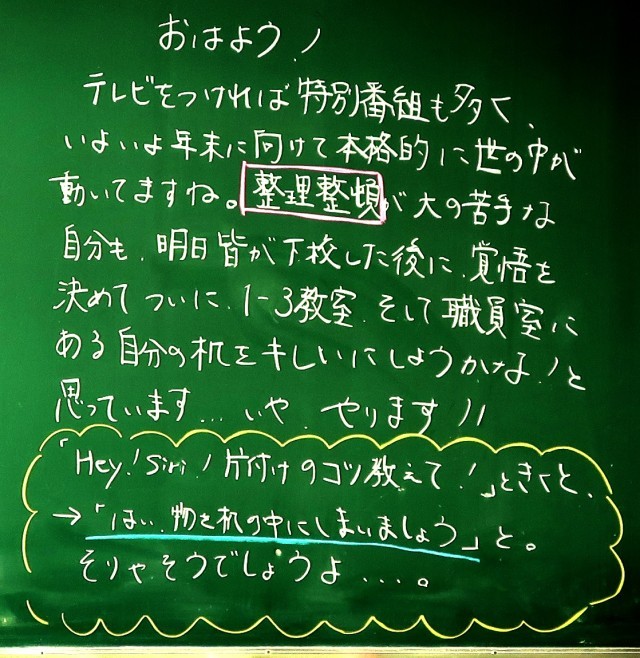 おはよう!
テレビをつければ特別番組も多く、
いよいよ年末に向けて本格的に世の中が
動いてますね。整理整頓が大の苦手な
自分も、明日皆が下校した後に、覚悟を
決めてついに、1-3教室、そして職員室に
ある自分の机をキレイにしようかな!と
思っています…いや、やります!!
「Hey!Siri!片付けのコツ教えて!」ときくと、
→「はい、物を机の中にしまいましょう」と。
そりゃそうでしょうよ….。